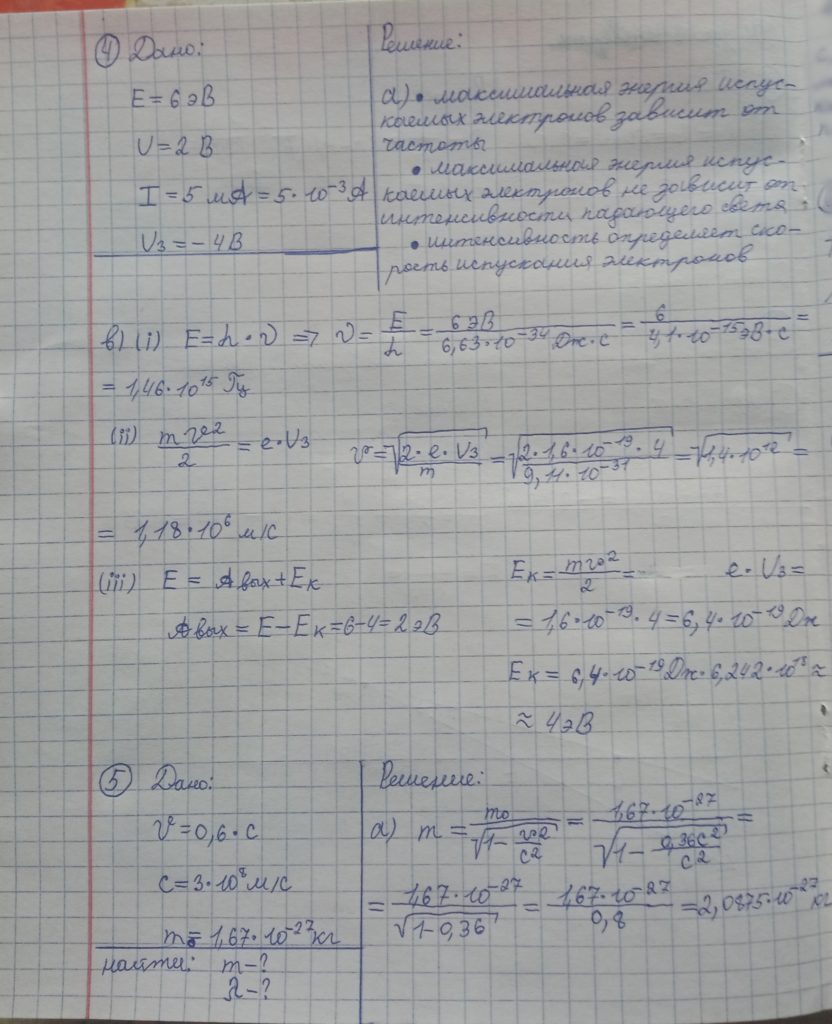 ④ Дано:
E = 6 эВ
U = 2 В
I = 5 мА = 5·10⁻³А
Uз = -4В
Решение:
а) • максимальная энергия испус-
каемых электронов зависит от
частоты
• максимальная энергия испус-
каемых электронов не зависит от
интенсивности падающего света
• интенсивность определяет ско-
рость испускания электронов
в) (i) E = h·ν ⇒ ν = E/h = 6 эВ/6,63·10⁻³⁴ Дж·с = 6/4,1·10⁻¹⁵ эВ·с =
= 1,46·10¹⁵ Гц
(ii) mv²/2 = e·Uз v = √(2·e·Uз/m) = √(2·1,6·10⁻¹⁹·4/9,11·10⁻³¹) = √(1,4·10¹²) =
= 1,18·10⁶ м/с
(iii) E = Aвых + Eк
Aвых = E - Eк = 6-4 = 2 эВ
Eк = mv²/2 = e·Uз =
= 1,6·10⁻¹⁹·4 = 6,4·10⁻¹⁹ Дж
Eк = 6,4·10⁻¹⁹ Дж·6,242·10¹⁸ ≈
≈ 4 эВ
⑤ Дано:
v = 0,6·c
c = 3·10⁸ м/с
m₀ = 1,67·10⁻²⁷ кг
найти: m - ?
λ - ?
Решение:
а) m = m₀/√(1 - v²/c²) = 1,67·10⁻²⁷/√(1 - 0,36c²/c²) =
= 1,67·10⁻²⁷/√(1-0,36) = 1,67·10⁻²⁷/0,8 = 2,0875·10⁻²⁷ кг